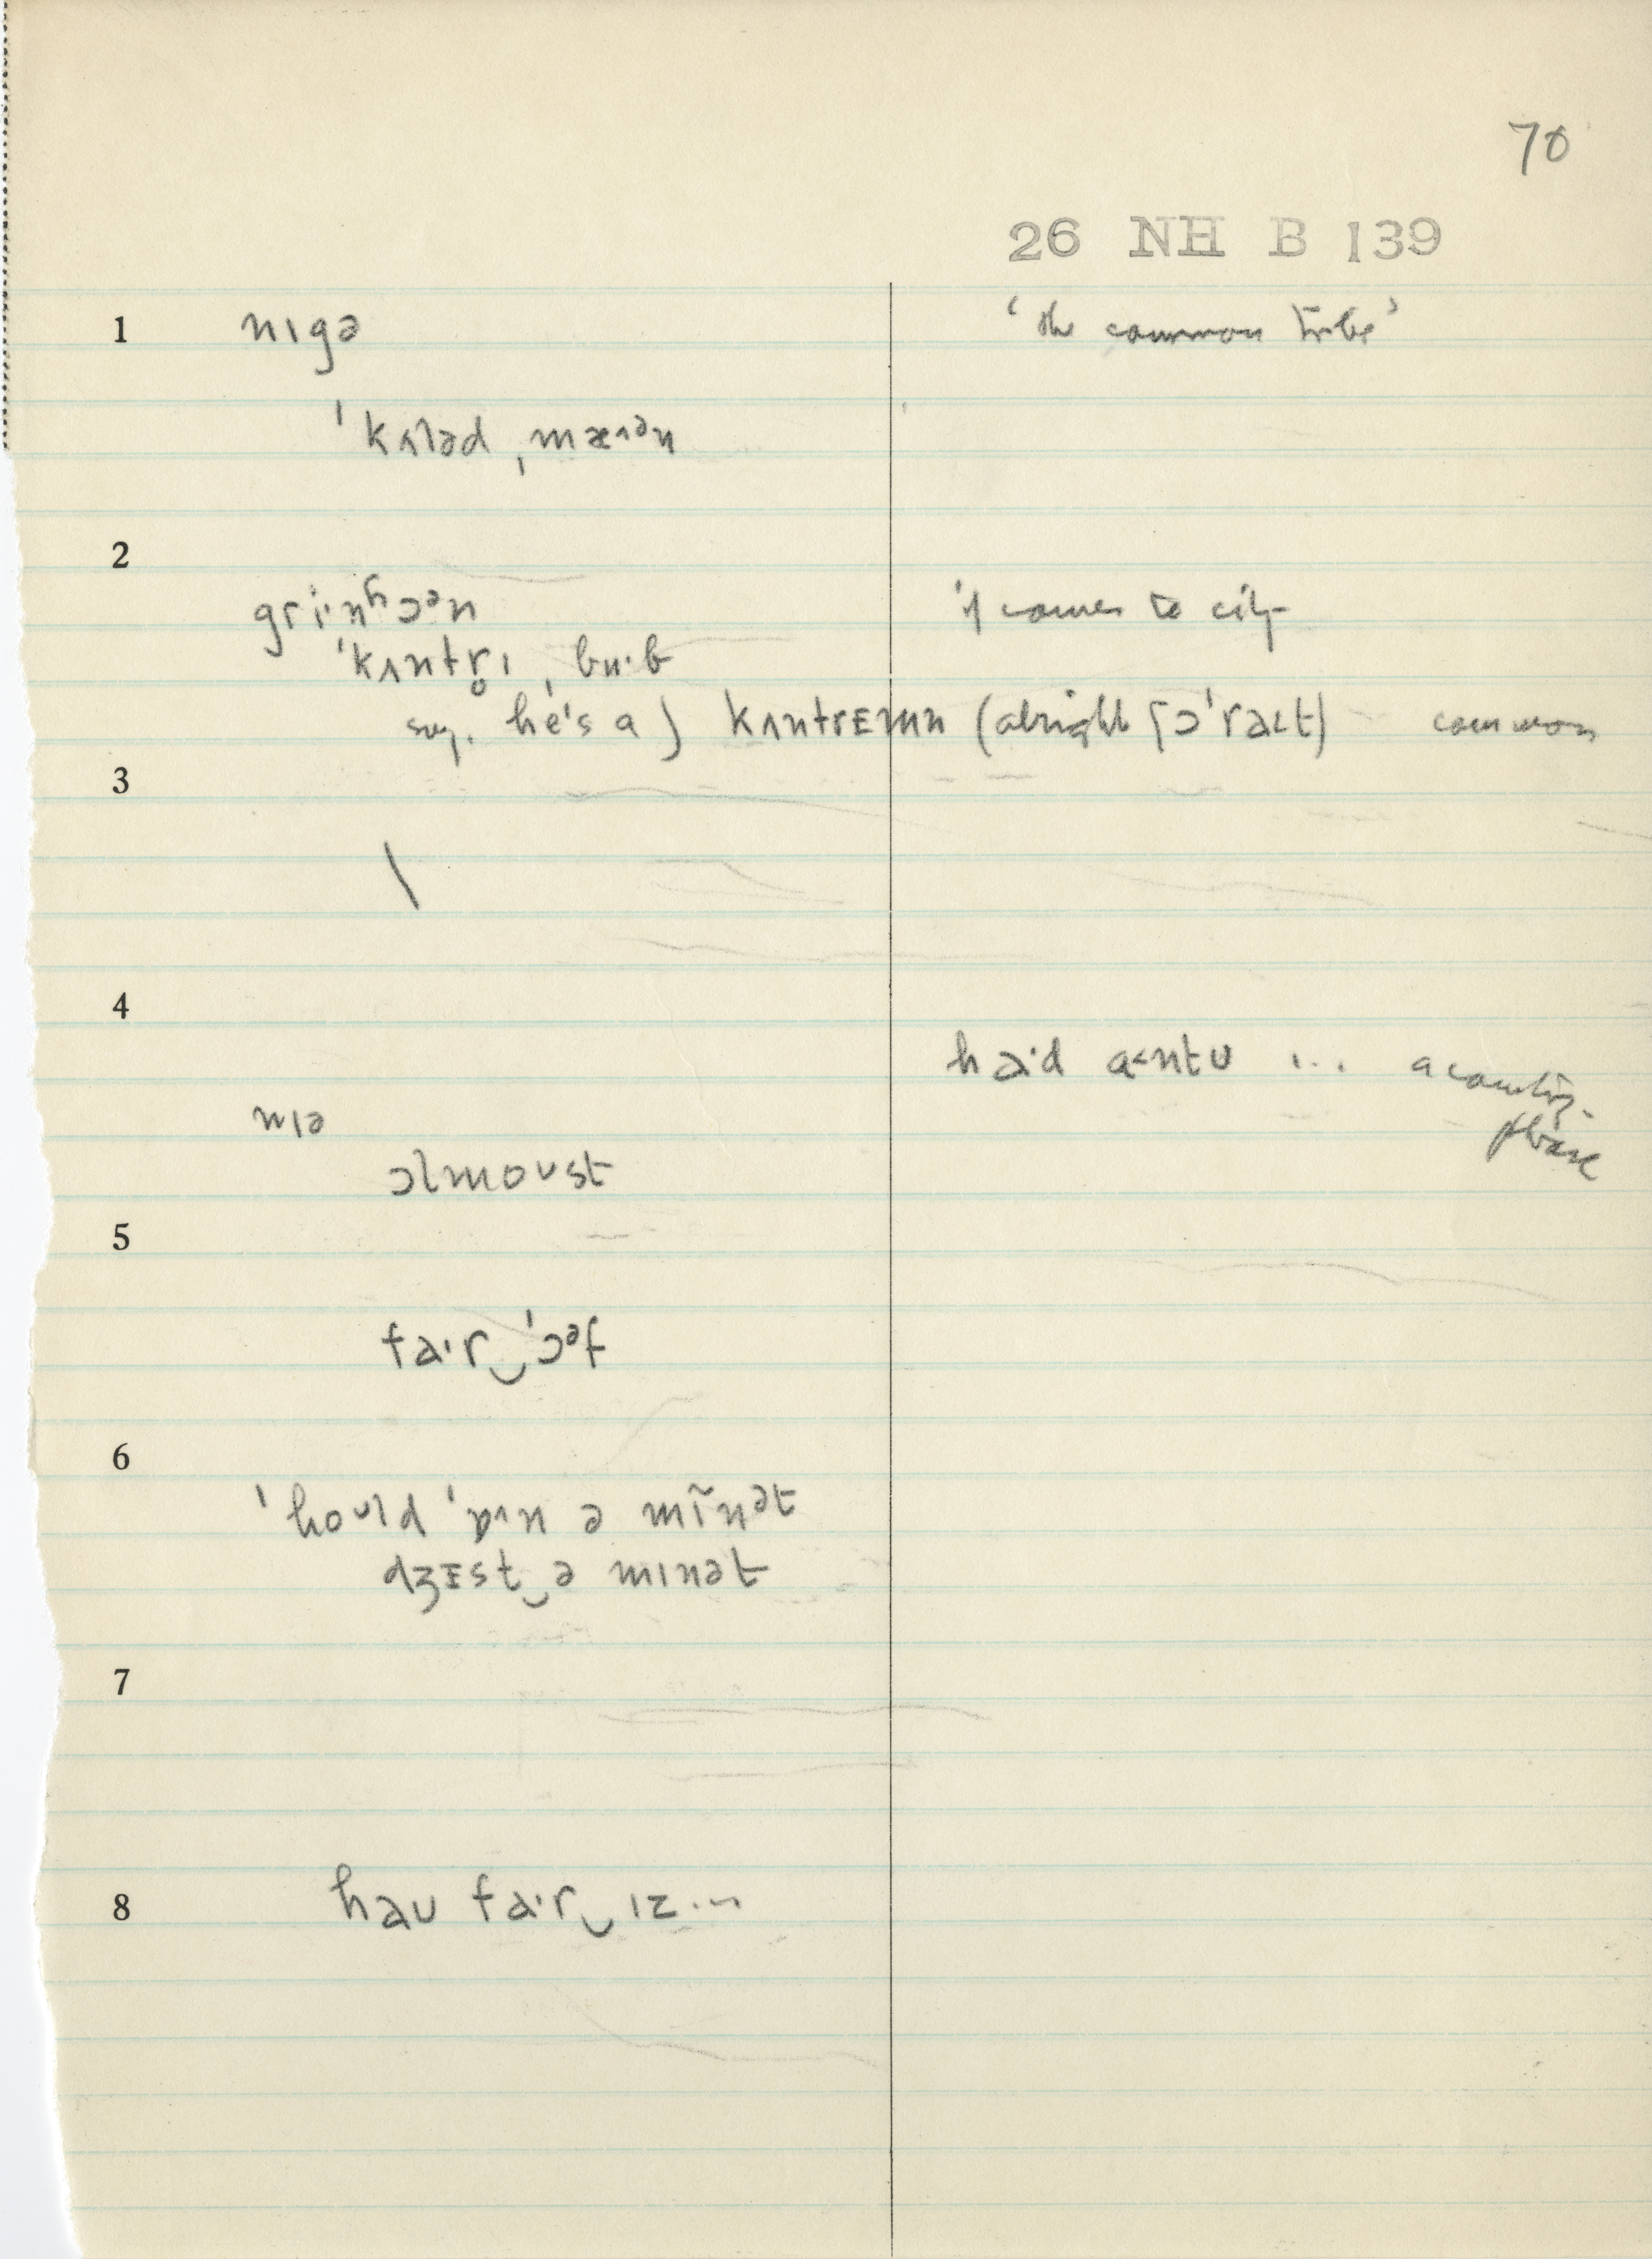 70
26 NH B 139
1 nɪgə ' the common tribe '
ˈkʌləd ˌmæɪᵊn
2
gri·nʰɔᵊn if comes to city
ˈkʌntr̥ɪ ˌbu·b
say. he's a ) kʌntrᴇmn (alright [ɔˈraɪt) common
3
\
4
ha·d a<ntʊ ... a counting-
phrase
nɪə
ɔlmoʊst
5
fa·r‿ˈɔᵊf
6
ˈhoʊld ˈɒɪn ə mĩnət
dʒᴇst‿ə mɪnət
7
8 haʊ fa·r‿ɪz...